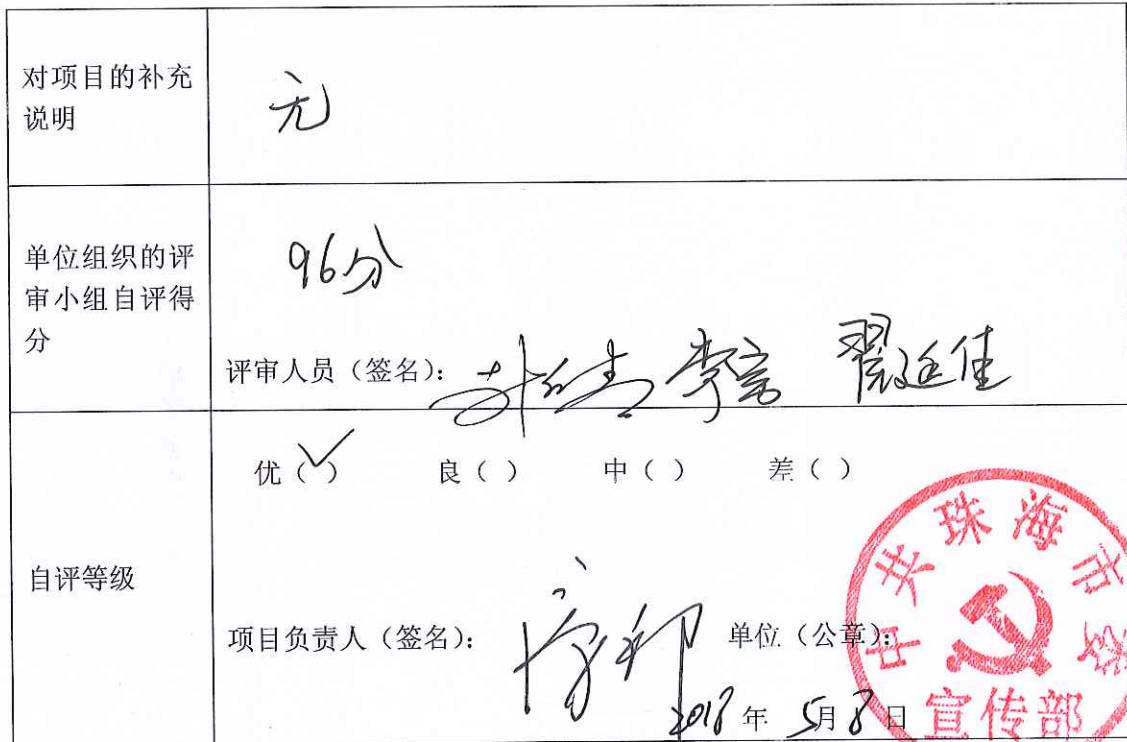 对项目的补充
说明
无
单位组织的评
审小组自评得
分
96分
评审人员（签名）：
翟廷佳
自评等级
优（✓） 良（ ） 中（ ） 差（ ）
项目负责人（签名）： 单位（公章）：
2018年 5月8日
中共珠海市委
宣传部